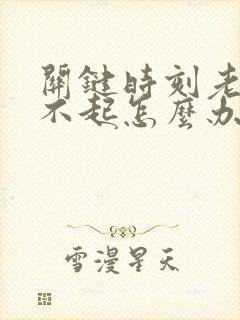 關鍵時刻老
不起怎麼办
雪漫星天